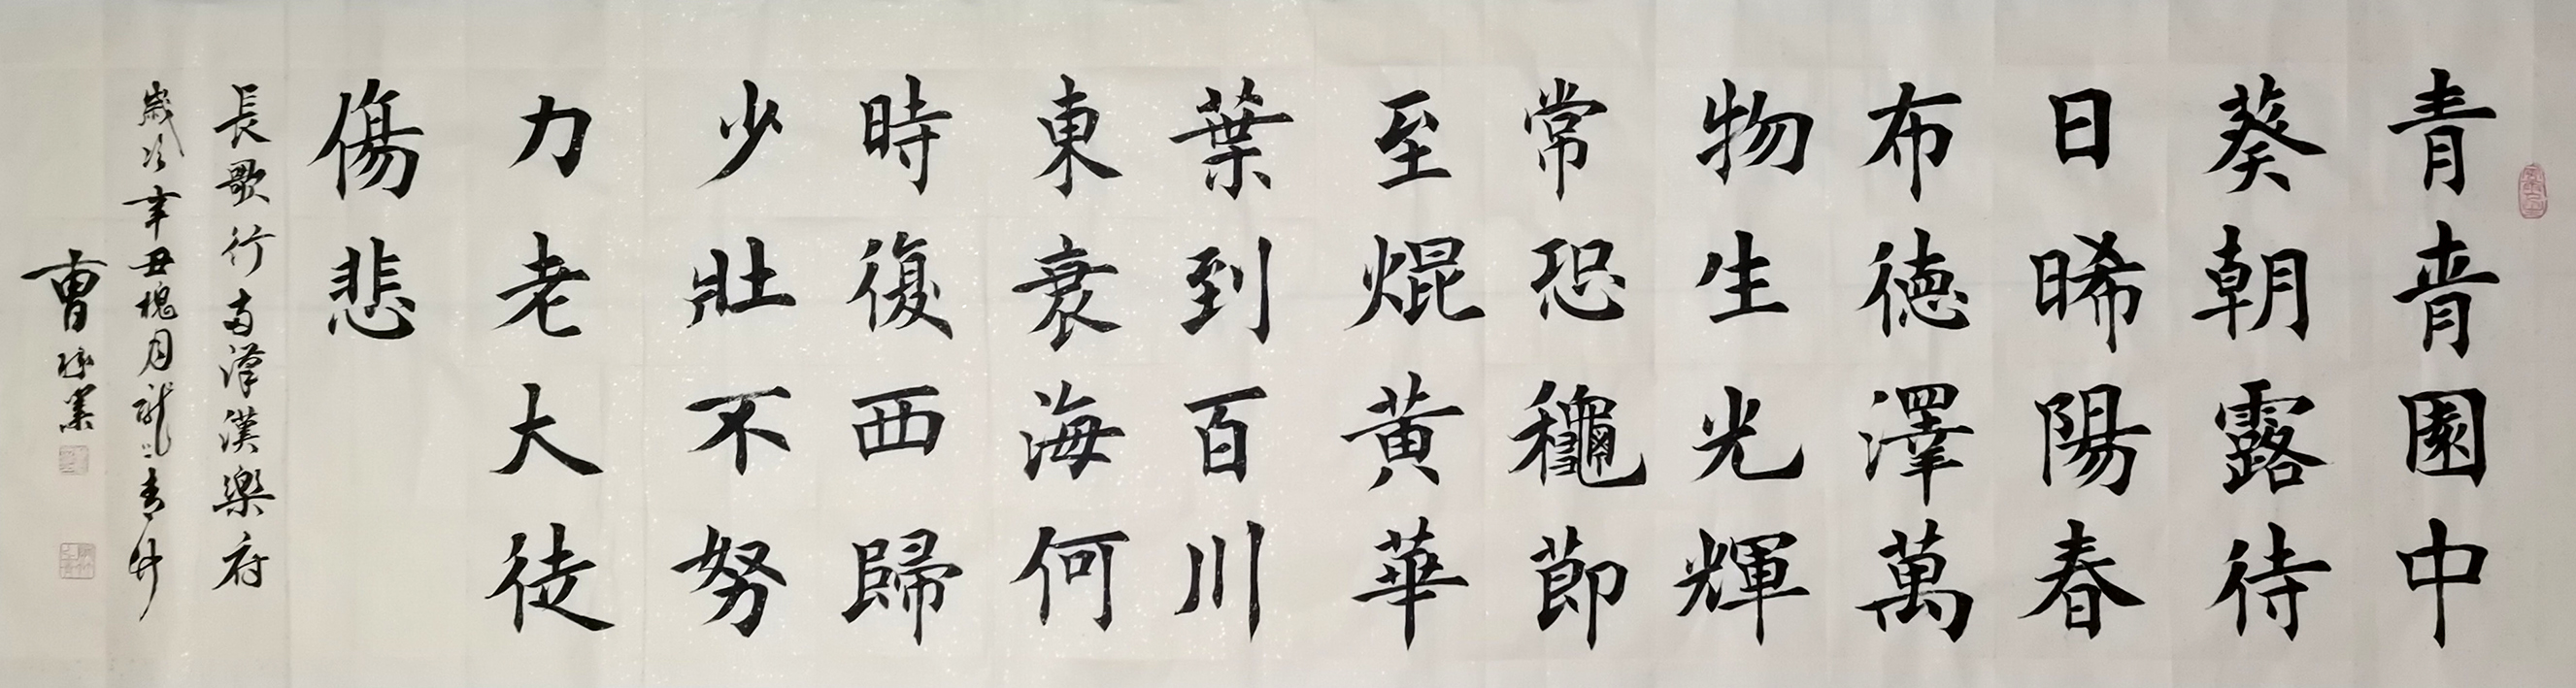 青青園中
葵朝露待
日晞陽春
布德澤萬
物生光輝
常恐穐節
至焜黃華
葉到百川
東衰海何
時復西歸
少壯不努
力老大徒
傷悲
長歌行 漢樂府
歲次辛丑槐月
曹